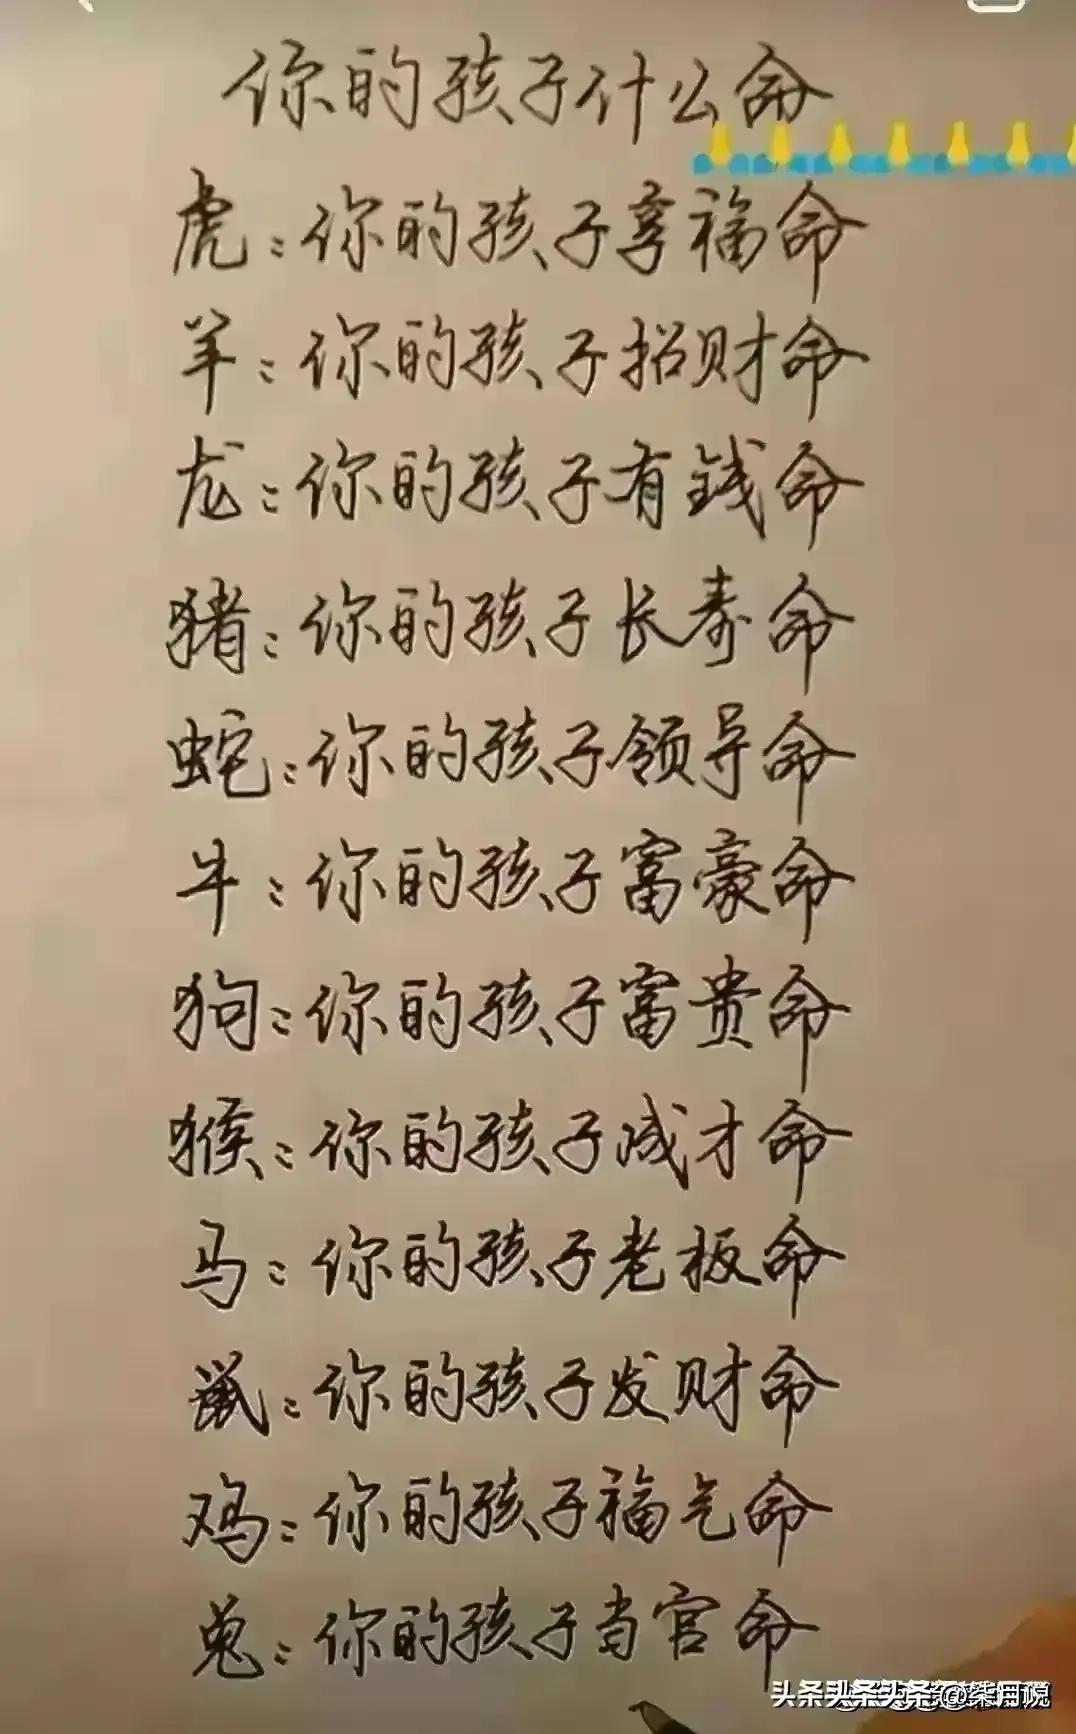 你的孩子什么命
虎:你的孩子享福命
羊:你的孩子招财命
龙:你的孩子有钱命
猪:你的孩子长寿命
蛇:你的孩子领导命
牛:你的孩子富豪命
狗:你的孩子富贵命
猴:你的孩子成才命
马:你的孩子老板命
鼠:你的孩子发财命
鸡:你的孩子福气命
兔:你的孩子当官命
头条头条头条